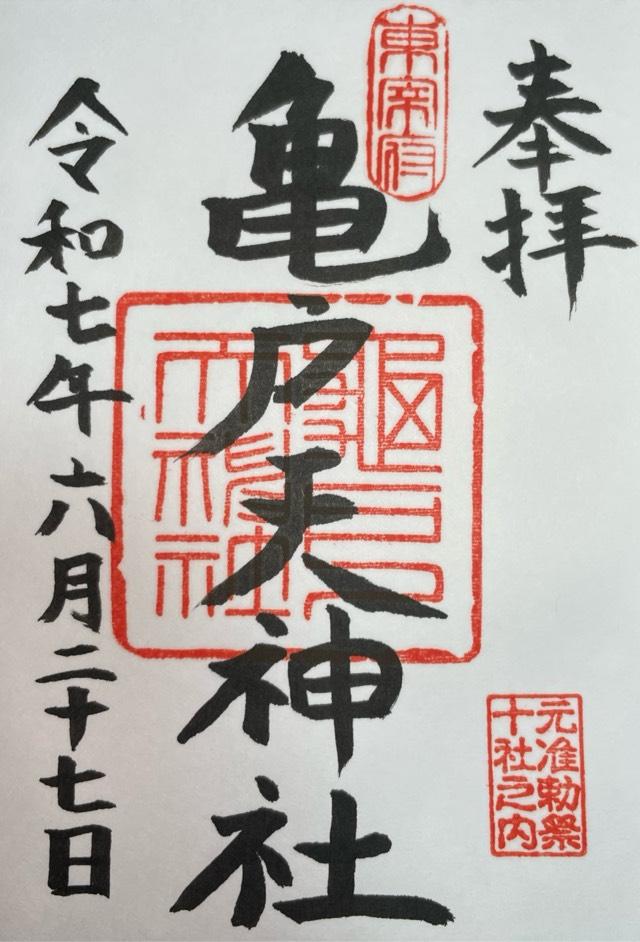 奉拝
東宰府
亀戸天神社
龜戸
天神社
元准勅祭
十社之内
令和七年六月二十七日